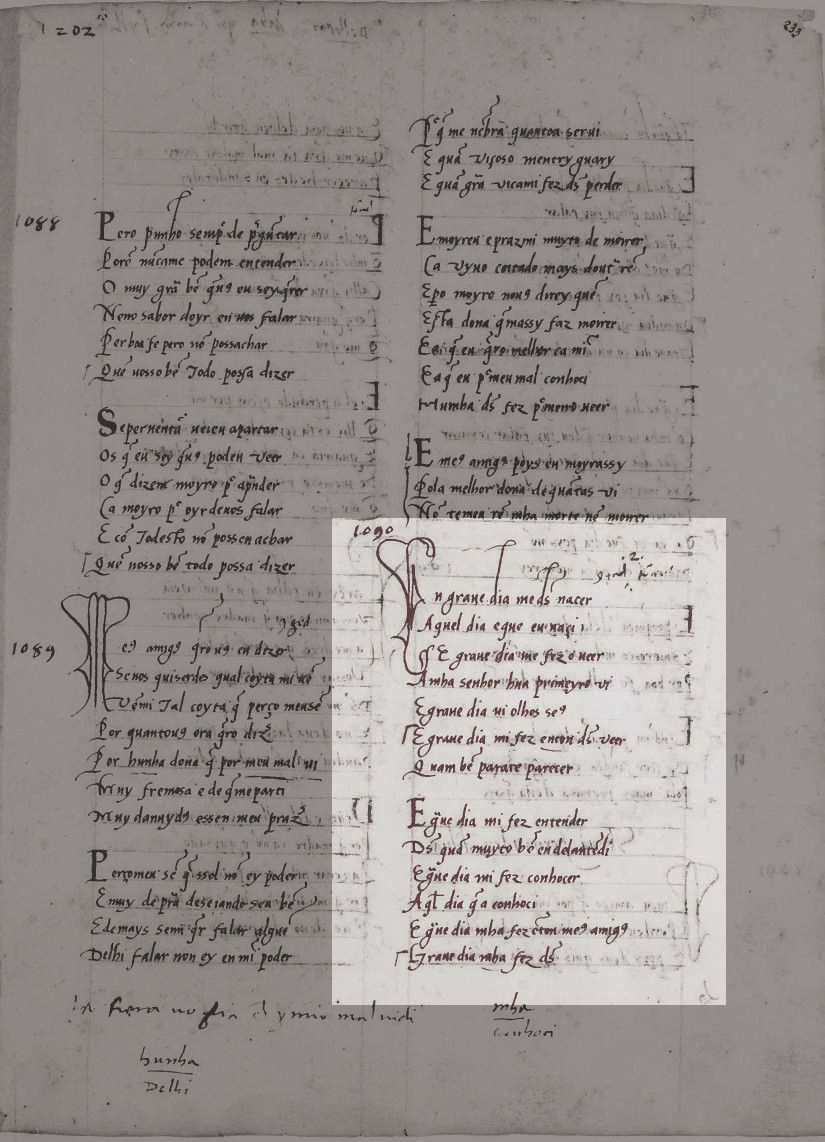 1202
233
1088
Pero punho semp̃ de p̃guntar
Porẽ nũcame podem entender
O muy grã bẽ q̃ uꝯ eu sey q̃rer
Nẽno sabor doyr en uos falar
Per boa fe pero nõ possachar
Quẽ uosso bẽ todo possa dizer
Seperuentã ueieu apartar
Os q̃ eu sey q̃ uꝯ poden veer
O q̃ dizem moyro pꝰ ap̃nder
Ca moyro pꝰ oyr deuos falar
E cõ todesto nõ possen achar
Quẽ uosso bẽ todo possa dizer
1089
Meꝯ amigꝯ q̃ro uꝯ eu dizer
Se uos quiserdes qual coyta mi uẽ
Vẽmi tal coyta q̃ perço meu sẽ
Por quantouꝯ ora q̃ro diz̃
Por hunha dona q̃ por meu mal ui
Muy fremosa e de q̃ me parti
Muy danuydꝯ e ssen meu praz̃
Perço meu sẽ q̃ ssol nõ ey poder
E muy de prã deseiando seu bẽ
E demays semi q̃r falar alguẽ
Delhi falar non ey en mĩ poder
hunha
Delhi
P̃ q̃ me nẽbrã quantoa serui
E quã viçoso mentry guary
E quã grã vicami fez dꝰs perder
E moyreu e prazmi muyto de morrer
Ca vyuo coitado mays doutˀ rẽ
Epo moyro nouꝯ direy quẽ
Esta dona q̃ massy faz morrer
E a q̃ eu q̃ro melhor ca mĩ
E a q̃ eu pꝰ meu mal conhoci
Mumha dꝰs fez p̃meiro ueer
E meꝯ amigꝯ poys eu moyrassy
Pola melhor dona de quãtas vi
Nõ temeu rẽ mha morte nẽ morrer
1090
En graue dia me dꝰs nacer
Aquel dia eque eu naçi
E graue dia me fez o ueer
A mha senhor hun primeyro vi
E graue dia ui olhos seꝯ
E graue dia mi fez enton dꝰs veer
Quam bẽ parate parecer
E gˀue dia mi fez entender
Dꝰs quã muyto bẽ en dela ntẽdi
E gˀue dia mi fez conhocer
Aq̃l dia q̃ a conhoci
E gˀue dia mha fez ẽton meꝯ amigꝯ
Graue dia mha fez dꝰs
mha
conhoci